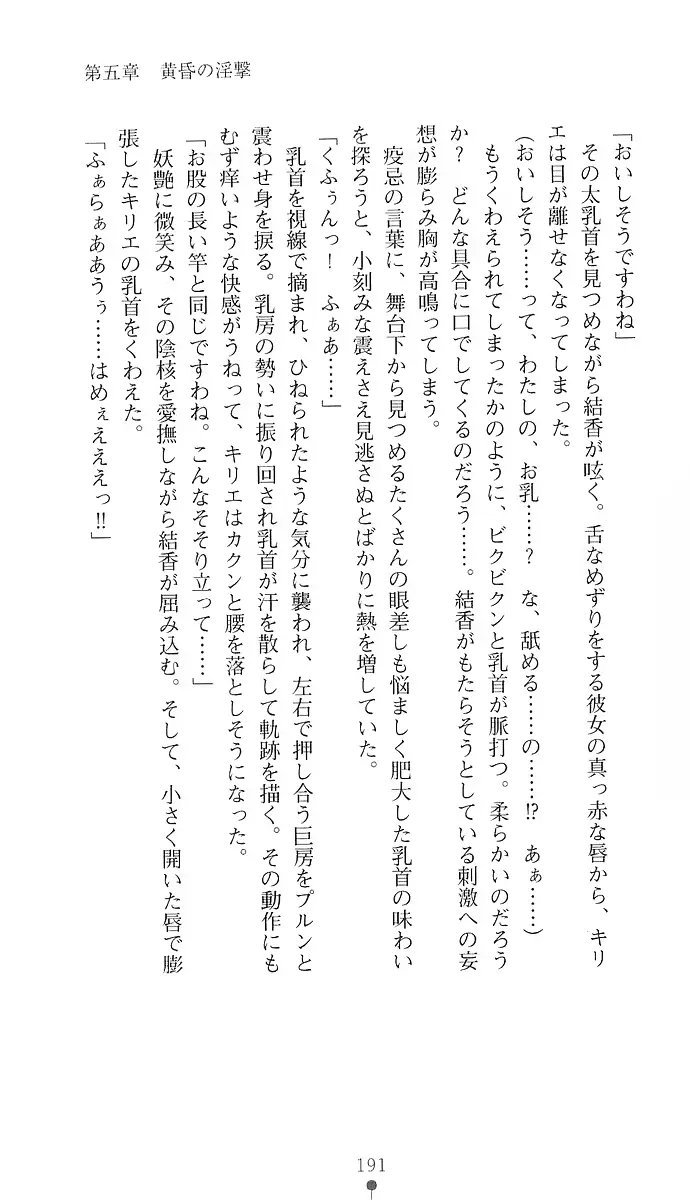 第五章　黄昏の淫撃
「おいしそうですわね」
　その太乳首を見つめながら結香が呟く。舌なめずりをする彼女の真っ赤な唇から、キリ
エは目が離せなくなってしまった。
（おいしそう……って、わたしの、お乳……？　な、舐める……の……!?　あぁ……）
　もうくわえられてしまったかのように、ビクビクンと乳首が脈打つ。柔らかいのだろう
か？　どんな具合に口でしてくるのだろう……。結香がもたらそうとしている刺激への妄
想が膨らみ胸が高鳴ってしまう。
　疫忌の言葉に、舞台下から見つめるたくさんの眼差しも悩ましく肥大した乳首の味わい
を探ろうと、小刻みな震えさえ見逃さぬとばかりに熱を増していた。
「くふぅんっ！　ふぁあ……」
　乳首を視線で摘まれ、ひねられたような気分に襲われ、左右で押し合う巨房をプルンと
震わせ身を捩る。乳房の勢いに振り回され乳首が汗を散らして軌跡を描く。その動作にも
むず痒いような快感がうねって、キリエはカクンと腰を落としそうになった。
「お股の長い竿と同じですわね。こんなそそり立って……」
　妖艶に微笑み、その陰核を愛撫しながら結香が屈み込む。そして、小さく開いた唇で膨
張したキリエの乳首をくわえた。
「ふぁらぁああうぅ……はめぇえええっ!!」
191